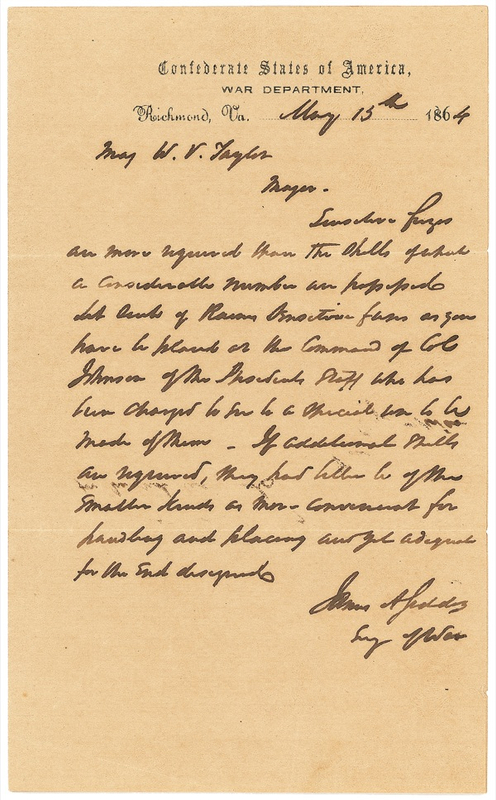 Confederate States of America,
WAR DEPARTMENT,
Richmond, Va. May 13th 1864
Maj W. V. Taylor
Major.
Sensitive fuzes
are more required than the Shells of which
a considerable number are possessed
Let such of Rains Sensitive fuses as you
have be placed at the Command of Col
Johnson of the Presidents Staff who has
been charged to see to a special use to be
made of them - If additional Shells
are required, they had better be of the
smaller kinds as more convenient for
handling and placing and yet adequate
for the End designed
James A Seddon
Secy of War